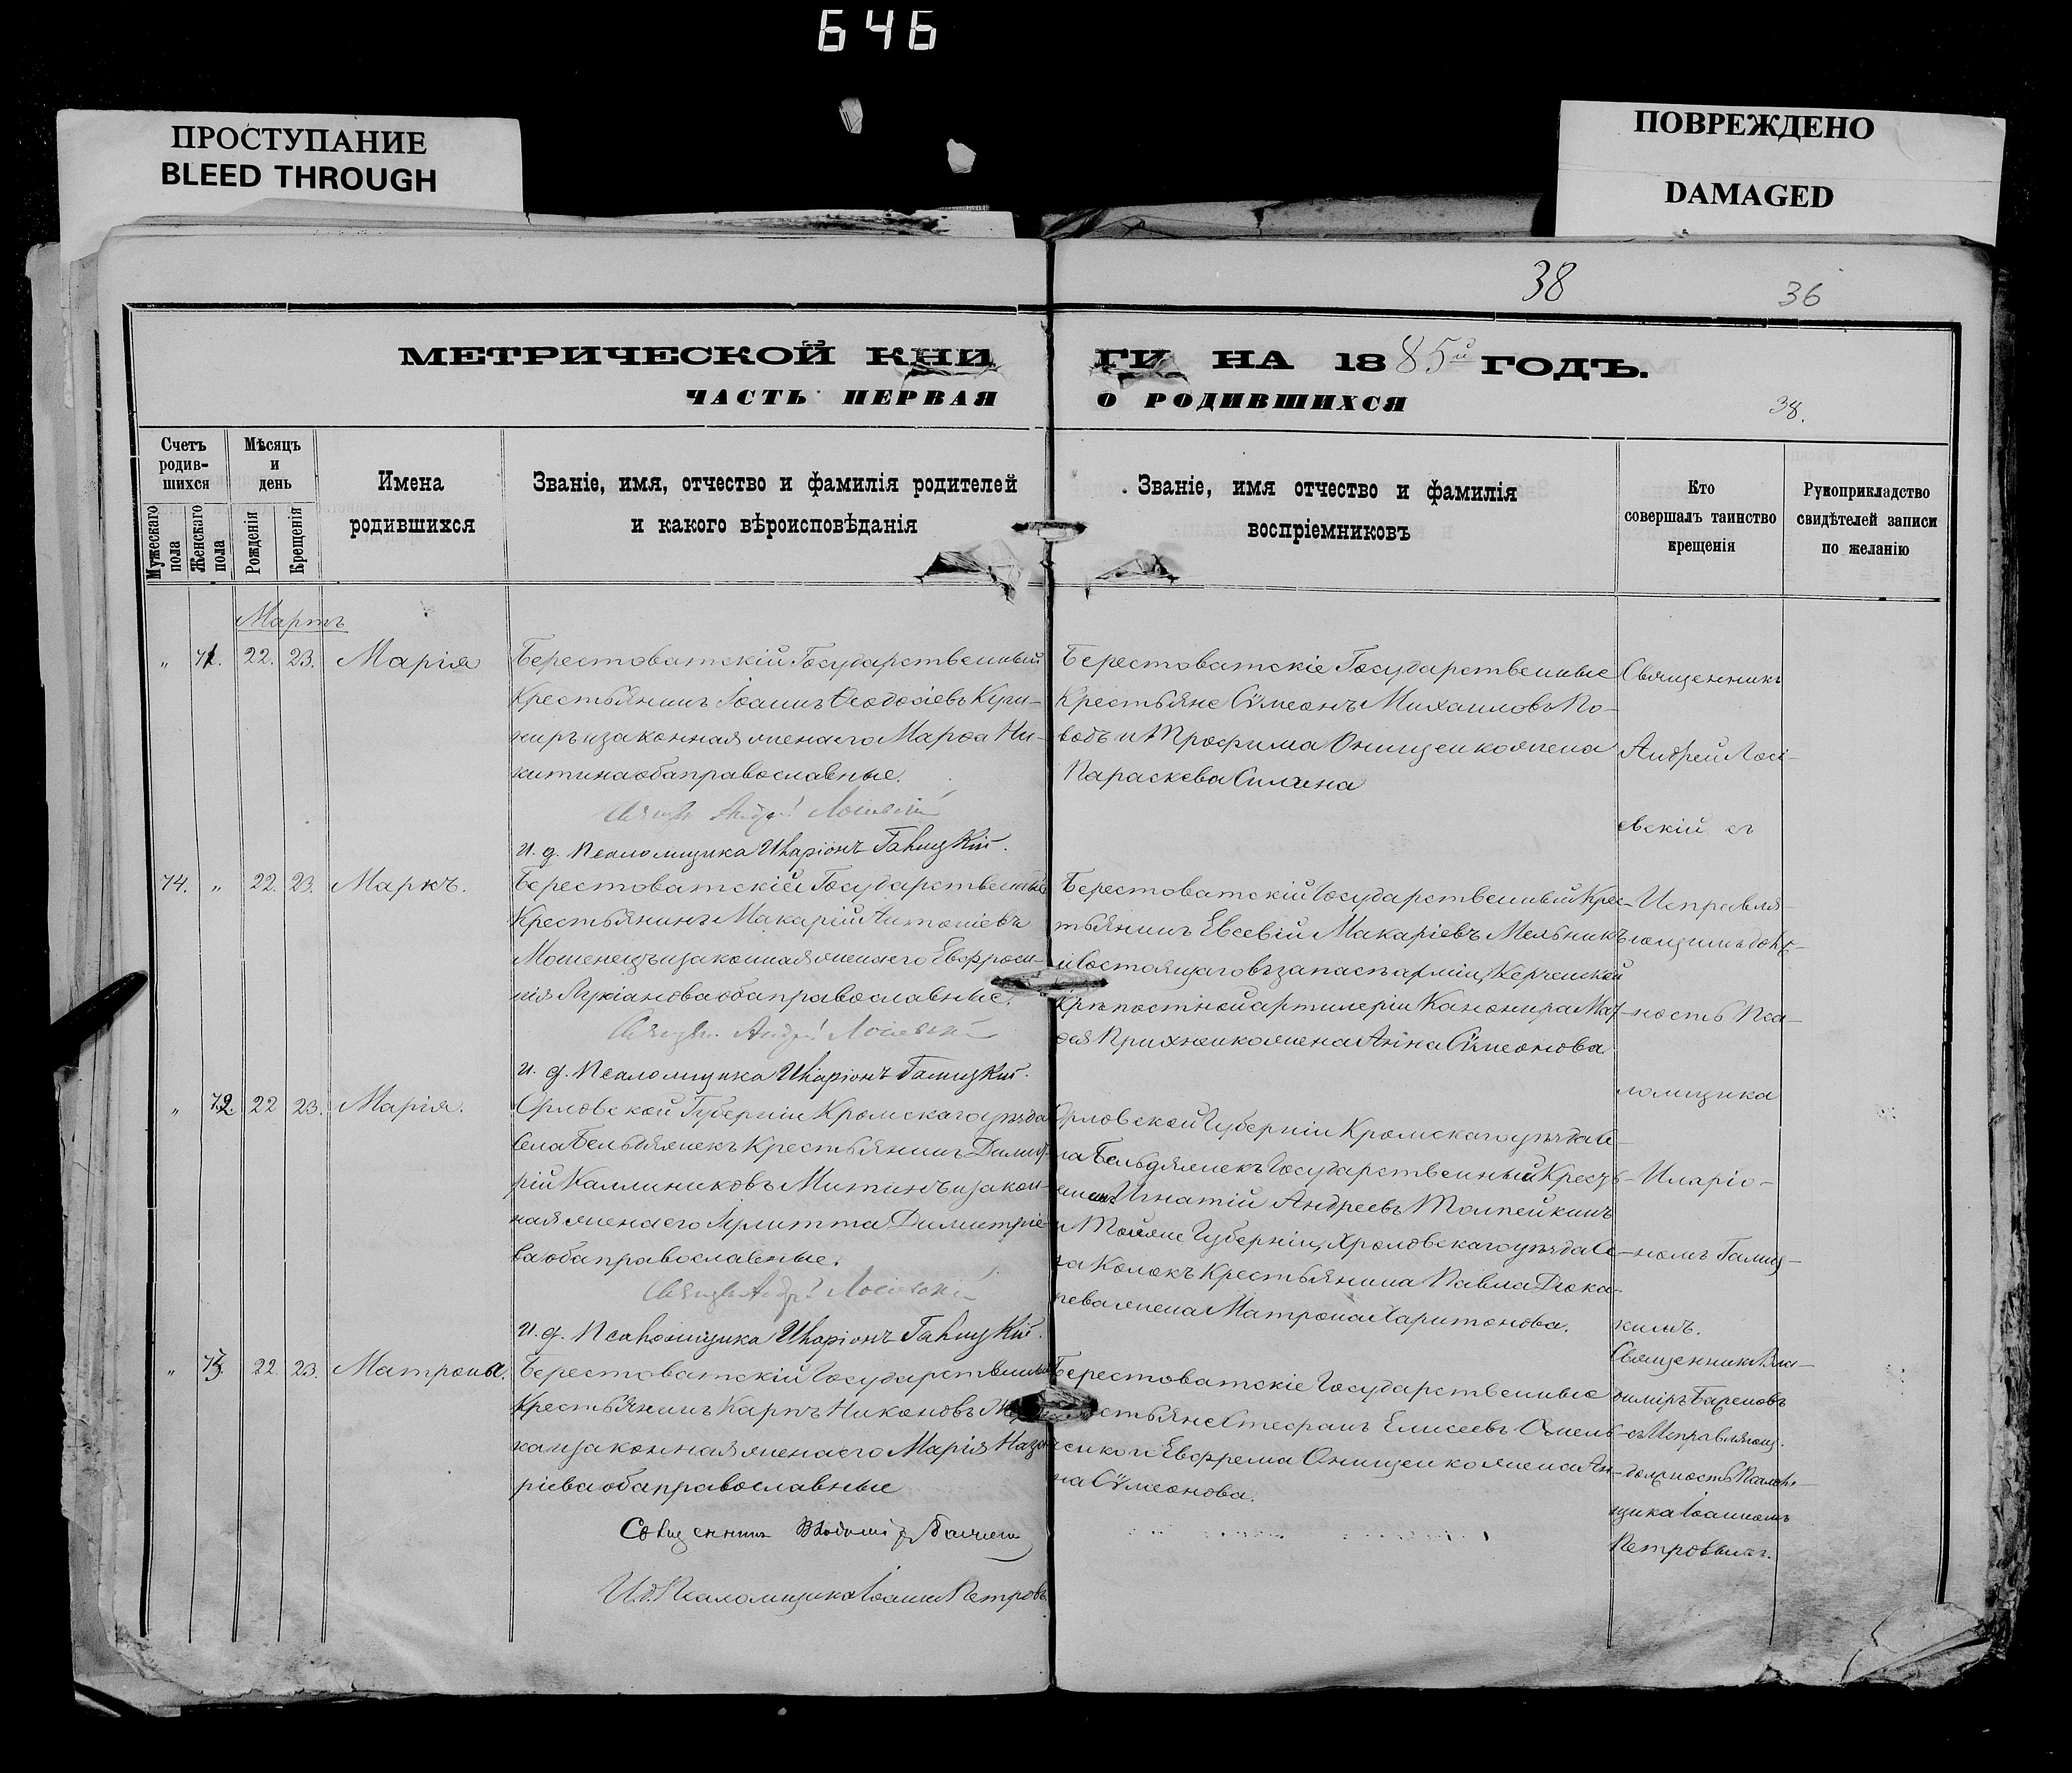 646
ПРОСТУПАНИЕ
BLEED THROUGH
ПОВРЕЖДЕНО
DAMAGED
38
36
МЕТРИЧЕСКОЙ КНИГИ НА 1885й ГОДЪ.
ЧАСТЬ ПЕРВАЯ О РОДИВШИХСЯ
38.
Счетъ родив-шихся
Мужескаго пола
Женскаго пола
Мѣсяцъ и день
Рожденія
Крещенія
Имена родившихся
Званіе, имя, отчество и фамилія родителей
и какого вѣроисповѣданія
Званіе, имя отчество и фамилія
воспріемниковъ
Кто
совершалъ таинство
крещенія
Рукоприкладство
свидѣтелей записи
по желанію
Мартъ
„ 71. 22. 23. Марія
Берестоватскій Государственный
Крестьянинъ Іоаннъ Ѳеодосіевъ
и законная жена его Марѳа Ни-
китина оба православные.
Андрей
и. д. Псаломщика Иларіонъ Галицкій.
Берестоватскіе Государственные
Крестьяне Сѵмеонъ Михаиловъ
и Трофима Онищенко жена
Параскева
Священникъ
Андрей Лосі-
евскій съ
74. „ 22. 23. Маркъ.
Берестоватскій Государственный
Крестьянинъ Макарій Антоніевъ
и законная жена его Евфроси-
нія Лукіанова оба православные.
Андрей
и. д. Псаломщика Иларіонъ Галицкій.
Берестоватскій Государственный Крес-
тьянинъ Евсевій Макаріевъ Мельникъ
и Состоящаго въ запасѣ арміи, Керченской
Крѣпостной артилеріи Канонира
жена Анна Сѵмеонова.
Исправля-
ющимъ долж-
ность Пса-
ломщика
„ 72. 22 23. Марія.
Орловской Губерніи Кромскаго уѣзда
Села Крестьянинъ Димит-
рій Каллиниковъ Митинъ и закон-
ная жена его Димитріе-
ва оба православные.
Андрей
и. д. Псаломщика Иларіонъ Галицкій.
Орловской Губерніи Кромскаго уѣзда Се-
ла Государственный Кресть-
Игнатій Андреевъ
и Тойже Губерніи, уѣзда Се-
ла Колокъ Крестьянина Павла
жена Матрона Харитонова.
Иларіо-
номъ Галиц-
кимъ.
„ 73. 22. 23. Матрона.
Берестоватскій Государственный
Крестьянинъ Карпъ Никоновъ
и законная жена его Марія Наза-
ріева оба православные
Священникъ Владиміръ
И. д. Псаломщика Іоаннъ Петровъ.
Берестоватскіе Государственные
Крестьяне Стефанъ Елисеевъ Омель-
ченко и Евфрема Онищенко жена Ан-
на Сѵмеонова.
Священникъ Вла-
диміръ
съ Исправляющ.
должность Псалом-
щика Іоанномъ
Петровымъ.